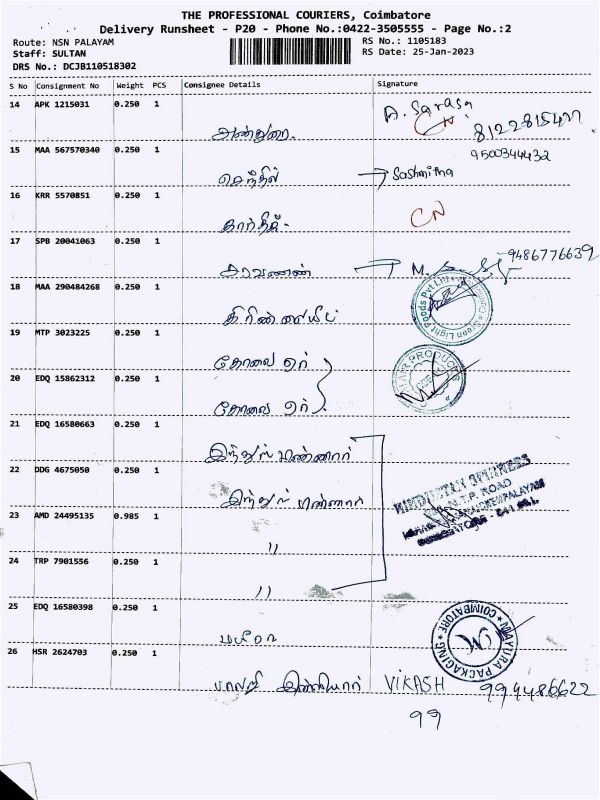 THE PROFESSIONAL COURIERS, Coimbatore
Delivery Runsheet - P20 - Phone No.:0422-3505555 - Page No.:2
Route: NSN PALAYAM
RS No.: 1105183
Staff: SULTAN
RS Date: 25-Jan-2023
DRS No.: DCJB110518302
S No Consignment No Weight PCS Consignee Details Signature
14 APK 1215031 0.250 1
A. Sarasa
CN
8122815427
அண்துரை.
15 MAA 567570340 0.250 1
9500344432
செந்தில் → Sashmitha
16 KRR 5570851 0.250 1
CN
கார்த்திக்-
17 SPB 20041063 0.250 1
9486776639
சரவணன் → M.
18 MAA 290484268 0.250 1
Green Light Foods Pvt Ltd
கிரீன்லைட்
19 MTP 3023225 0.250 1
கோவை ஏர்
20 EDQ 15862312 0.250 1
AIR PRODUCTS
கோவை ஏர்
21 EDQ 16580663 0.250 1
22 DDG 4675050 0.250 1
HINDUSTAN SPINNERS
M.T.P. ROAD
23 AMD 24495135 0.985 1
COIMBATORE - 641
"
24 TRP 7901556 0.250 1
"
25 EDQ 16580398 0.250 1
MAYURA PACKAGING COIMBATORE
26 HSR 2624703 0.250 1
VIKASH 999486622
99